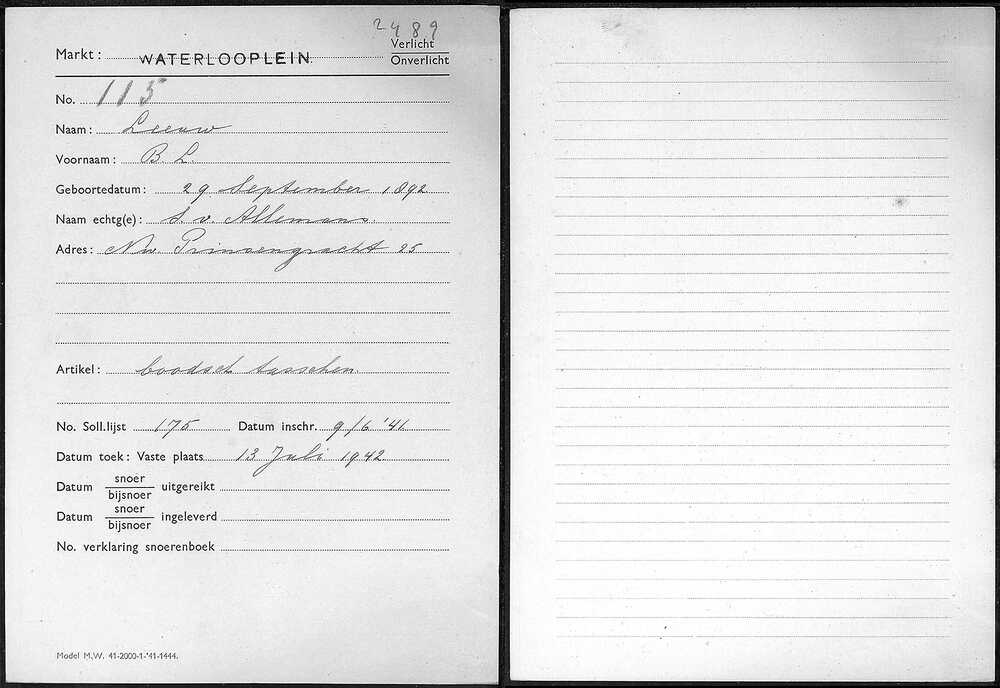 2489
Markt: WATERLOOPLEIN. Verlicht
Onverlicht
No. 115
Naam: Leeuw
Voornaam: B. L.
Geboortedatum: 29 September 1892
Naam echtg(e): S. v. Allemans.
Adres: Nw. Prinsengracht 25
Artikel: boodsch tasschen.
No. Soll.lijst 175 Datum inschr. 9/6 '41
Datum toek: Vaste plaats 13 Juli 1942
Datum snoer/bijsnoer uitgereikt
Datum snoer/bijsnoer ingeleverd
No. verklaring snoerenboek
Model M.W. 41-2000-1-'41-1444.